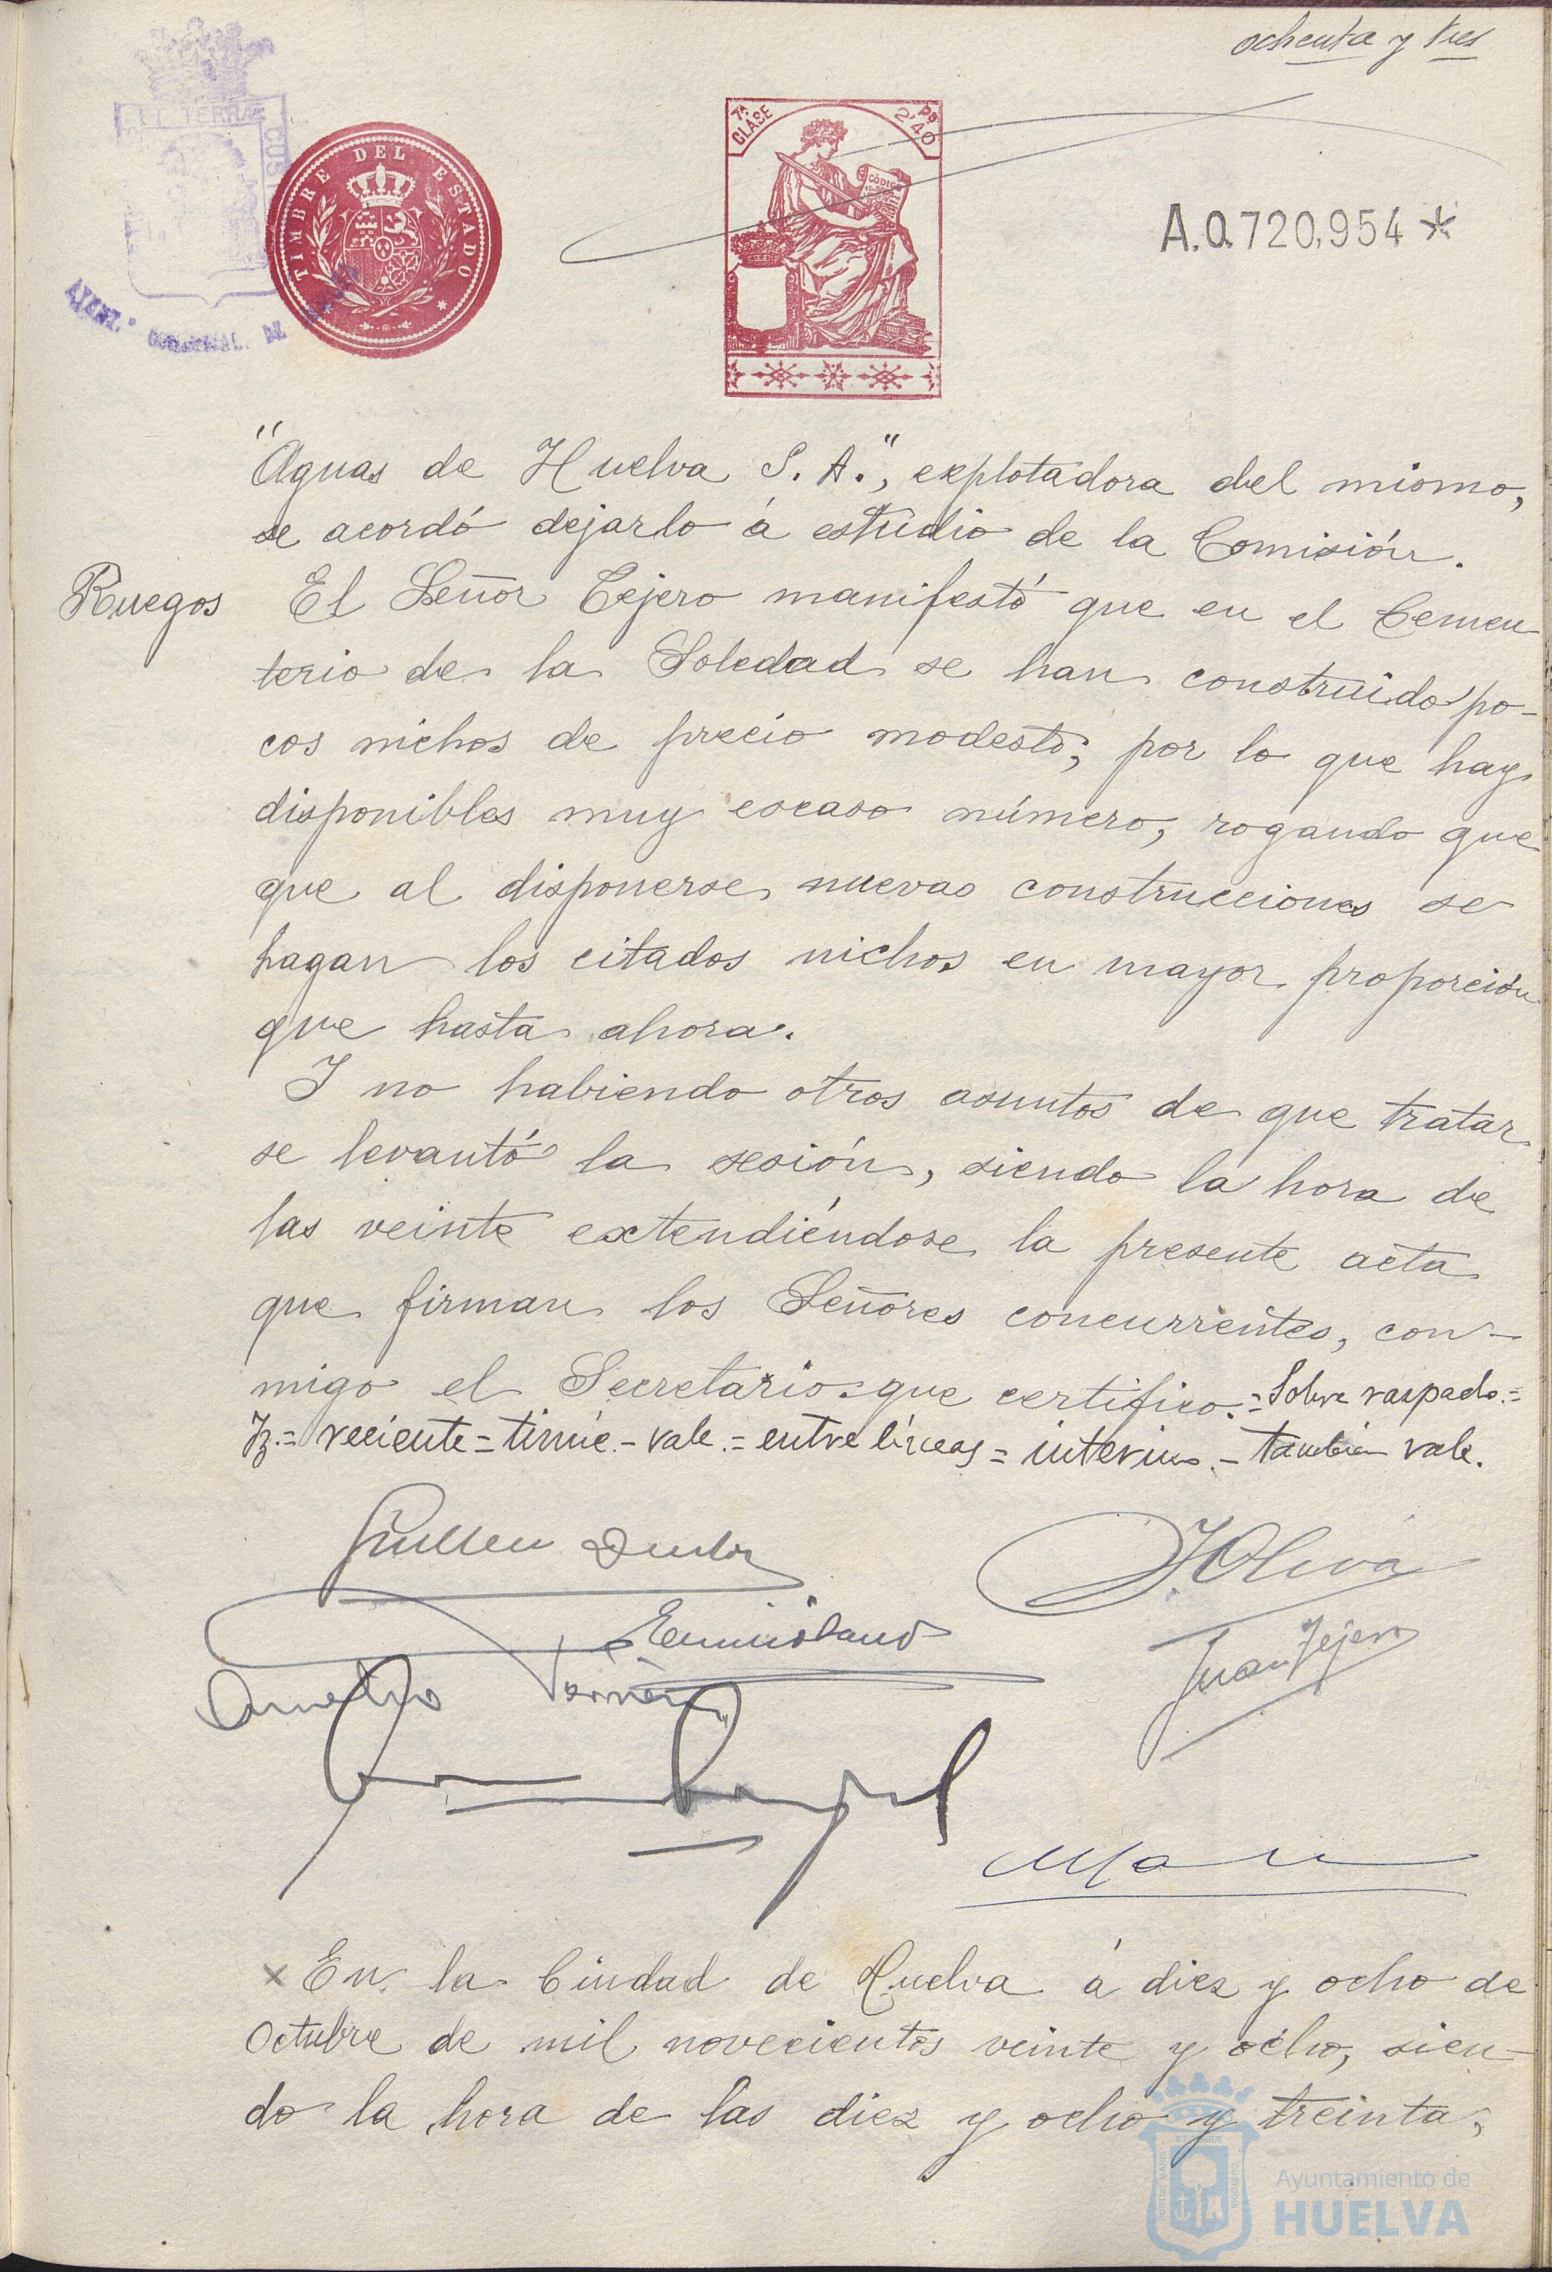 ochenta y tres
EL TERRAE CUS
TIMBRE DEL ESTADO
7ª CLASE
PS 2'40
CÓDIGO
A.0.720,954 *
AYUNT.º DE
"Aguas de Huelva S. A.", explotadora del mismo,
se acordó dejarlo á estudio de la Comisión.
Ruegos
El Señor Tejero manifestó que en el Cemen
terio de la Soledad se han construido po-
cos nichos de precio modesto; por lo que hay
disponibles muy escaso número, rogando que
que al disponerse nuevas construcciones se
hagan los citados nichos en mayor proporción
que hasta ahora.
Y no habiendo otros asuntos de que tratar
se levantó la sesión, siendo la hora de
las veinte extendiéndose la presente acta
que firman los Señores concurrentes, con-
migo el Secretario que certifico.= Sobre raspado.=
z.= reciente = - vale.= entre líneas = interino.- también vale.
J. Oliva
Juan Tejero
× En la Ciudad de Huelva á diez y ocho de
Octubre de mil novecientos veinte y ocho, sien-
do la hora de las diez y ocho y treinta,
Ayuntamiento de
HUELVA